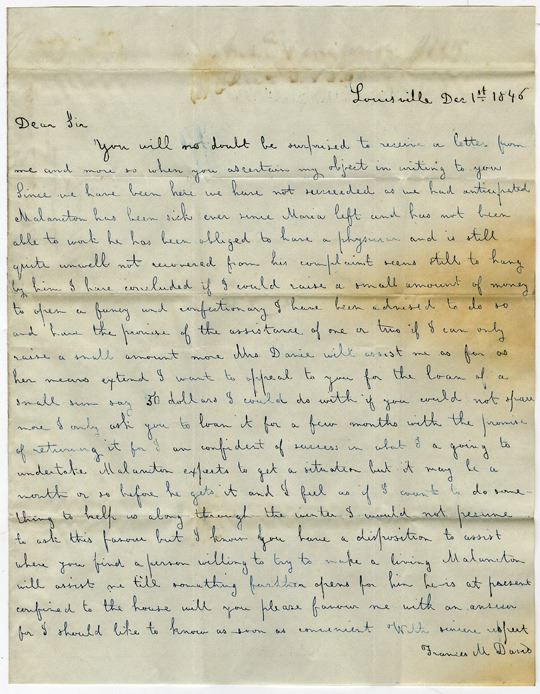 Louisville Dec 1st 1846
Dear Sir
You will no doubt be surprised to receive a letter from
me and more so when you ascertain my object in writing to you
Since we have been here we have not succeeded as we had anticipated
Malancton has been sick ever since Maria left and has not been
able to work he has been obliged to have a physician and is still
quite unwell not recovered from his complaint seems still to hang
by him I have concluded if I could raise a small amount of money
to open a fancy and confectionary I have been advised to do so
and have the promise of the assistance of one or two if I can only
raise a small amount more Mrs will assist me as far as
her means extend I want to appeal to you for the loan of a
small sum say 50 dollars I could do with if you could not spare
more I only ask you to loan it for a few months with the promise
of returning it for I am confident of success in what I a going to
undertake Malancton expects to get a situation but it may be a
month or so before he gets it and I feel as if I want to do some-
thing to help us along through the winter I would not presume
to ask this favour but I know you have a disposition to assist
where you find a person willing to try to make a living Malancton
will assist me till something further opens for him he is at present
confined to the house will you please favour me with an answer
for I should like to know as soon as convenient With sincere respect
Frances M David